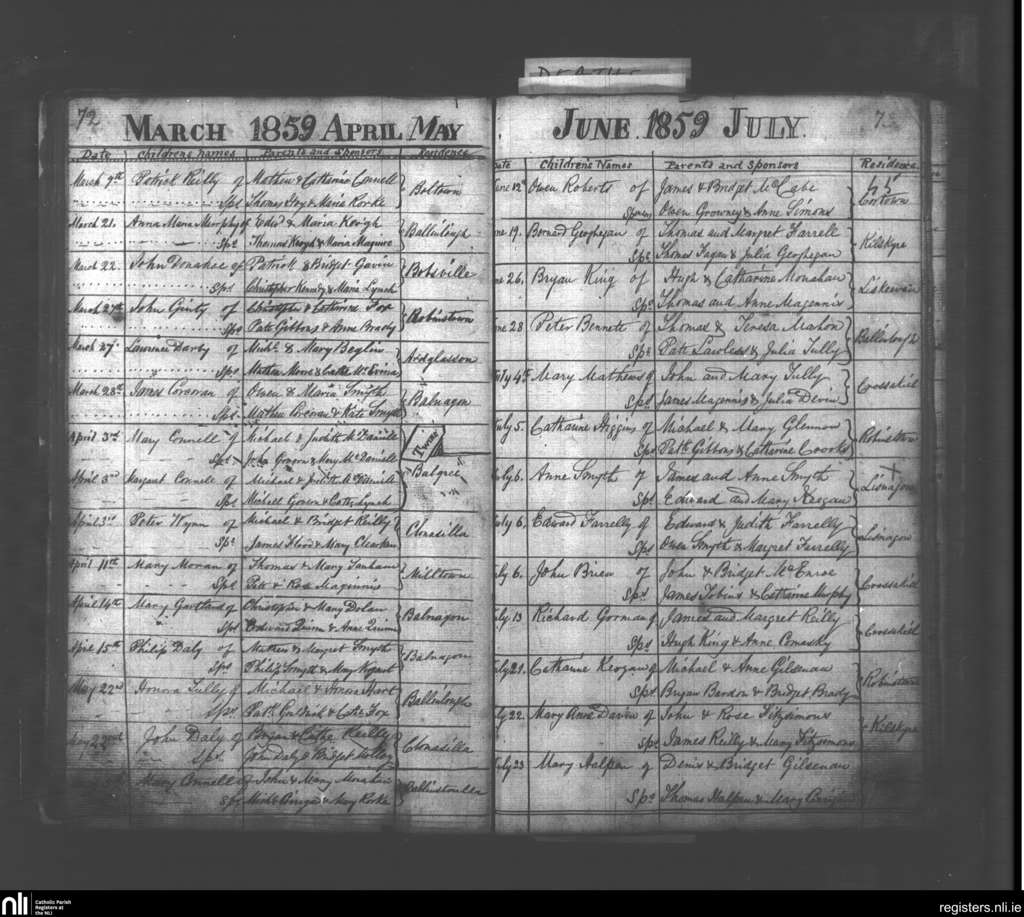 DEATHS
72
MARCH 1859 APRIL MAY
Date Childrens Names Parents and Sponsors Residence
March 9th Patrick Reilly of Mathew & Catharine Connell
Sps Thomas Foy & Maria Rorke Boltown
March 21. Anna Maria Murphy of Edwd & Maria Keoigh
Sps Thomas Keogh & Maria Maguire Ballinlough
March 22. John Donahoe of Patrick & Bridget Gavin
Sps Christopher Kennedy & Maria Lynch Bobsville
March 27th John Ginty of Christopher & Catherine Fox
Sps Patk Gibbons & Anne Brady Robinstown
March 27. Lawrence Darby of Michl. & Mary Beglin
Sps Ardglasson
March 28th James Corcoran of Owen & Maria Smyth
Sps Mathew Corcoran & Kate Smyth Balnagon
April 3rd Mary Connell of Michael & Judith McDaniell
Sps John & Mary McDaniell Twins
April 3rd Margaret Connell of Michael & Judith McDaniell Balgree
Sps Michael & Cath. Lynch
April 3rd Peter Wynn of Michael & Bridget Reilly
Sps James Flood & Mary Clearkin Clonasilla
April 11th Mary Moran of Thomas & Mary Fanham
Sps Patk & Rose Maginnis Milltown
April 14th Mary Gartland of Christopher & Mary Dolan
Sps Edward Quinn & Anne Quinn Balnagon
April 15th Philip Daly of Mathew & Margret Smyth
Sps Philip Smyth & Mary Balnagon
May 22nd Honora Tully of Michael & Honora Hart
Sps Patk. & Cathe Fox Ballinlough
May 22nd John Daly of Bryan & Cathe Reilly
Sps. John Daly & Bridget Clonasilla
Mary Connell of John & Mary Monahan
Sps & Mary Rorke
JUNE. 1859 JULY.
7
ate Childrens Names Parents and Sponsors Residence
une 12th Owen Roberts of James & Bridget McCabe
Sponsrs Owen Growney & Anne Simons Cortown
ne 19. Bernard Geoghegan of Thomas and Margret Farrell
Sps Thomas Fagan & Julia Geoghegan Kilskyre
ne 26. Bryan King of Hugh & Catharine Monahan
Sps Thomas and Anne Magennis
ne 28 Peter Bennett of Thomas & Teresa Mahon
Sps Patk Lawless & Julia Tully
July 4th Mary Mathews of John and Mary Tully
Sps James Magennis & Julia Devin Crosskiel
uly 5. Catharine Higgins of Michael & Mary Glennon
Sps Patk Gibbons & Catherine Robinstown
uly 6. Anne Smyth of James and Anne Smyth
Sps Edward and Mary Reegan Lisnagon
uly 6. Edward Farrelly of Edward & Judith Farrelly
Sps Owen Smyth & Margret Farrelly Lisnagon
uly 6. John Brien of John & Bridget McEnroe
Sps. James Tobins & Catharine Murphy Crosskiel
uly 13 Richard Gorman of James and Margret Reilly
Sps Hugh King & Anne Comasky Crosskiel
uly 21. Catharine Keogan of Michael & Anne Gilsenan
Sps. Bryan Bardon & Bridget Brady Robinstown
ly 22. Mary Anne Darvin of John & Rose Fitzsimons
Sps James Reilly & Mary Fitzsimons Kilskyre
uly 23 Mary Halpen of Denis & Bridget Gilsenan
Sps Thomas Halpen & Mary
nli Catholic Parish
Registers at
the NLI
registers.nli.ie